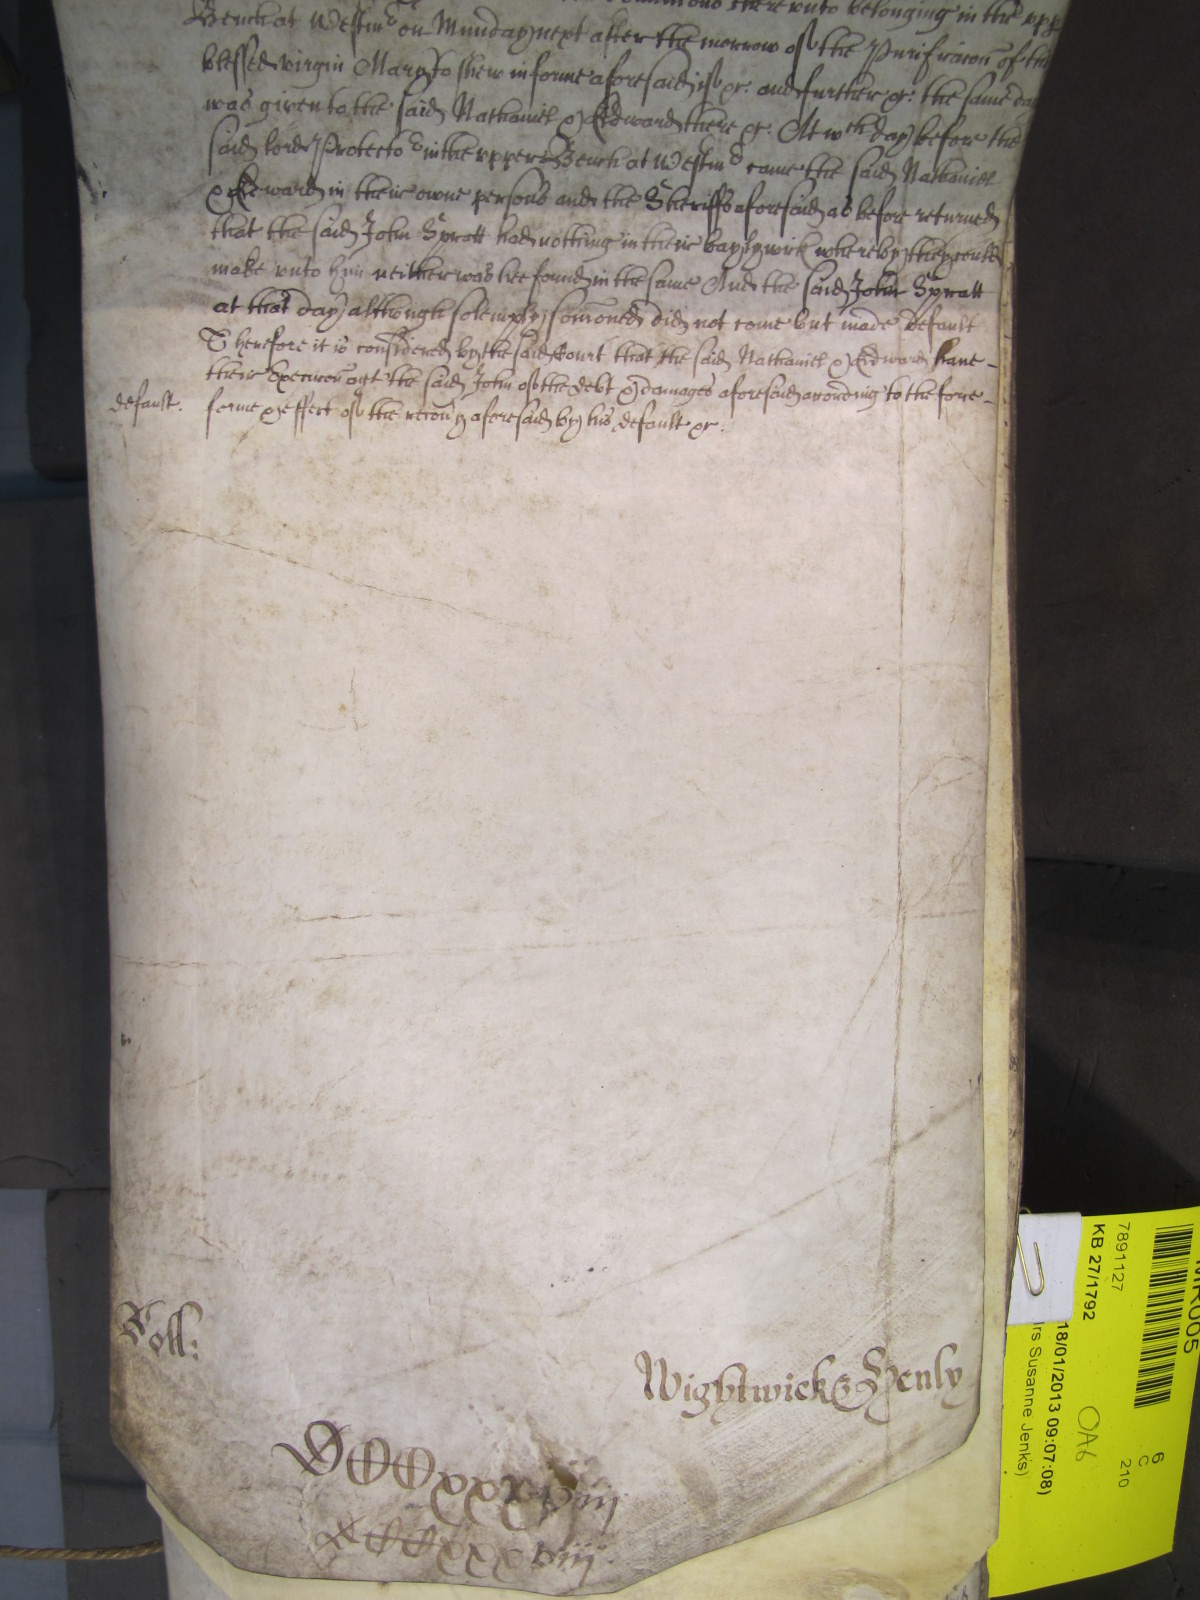 thereunto belonging in the upp
Bench at Westmr on Munday next after the morrow of the Purificacon of the
blessed virgin Mary to shew in forme aforesaid if &c. and further &c. the same day
was given to the said Nathaniel & Edward there &c. At wch day before the
said lord Protector in the upper Bench at Westmr came the said Nathaniel
& Edward in their owne persons and the Sheriffs aforesaid as before returned
that the said John Spratt had nothing in their baylywick whereby they could
make unto him neither was hee found in the same And the said John Spratt
at that day although solemply somoned did not come but made default
Therefore it is considered by the said Court that the said Nathaniel & Edward have
their Execucon agt the said John of the debt & damages aforesaid according to the
default. forme & effect of the recouy aforesaid by his default &c.
Roll:
Wightwick & Henly
DCCxxxviij
xxxviij
7891127
KB 27/1792
18/01/2013 09:07:08)
rs Susanne Jenks)
OA6
6
C
210
MR005